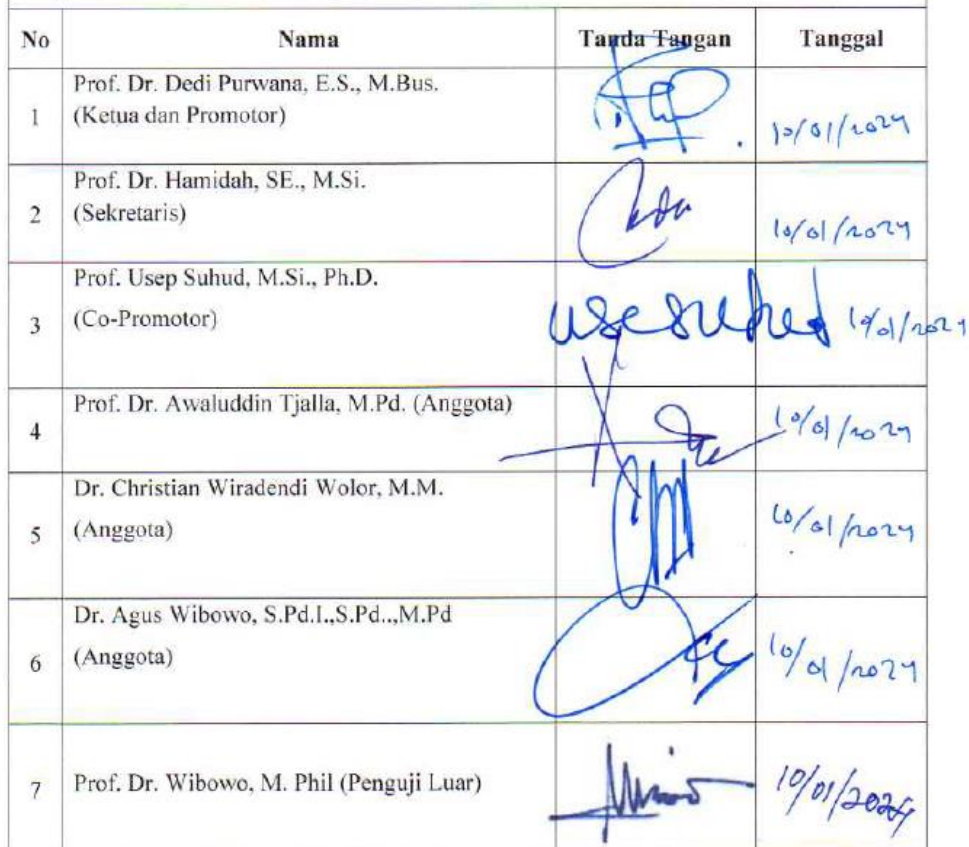 No Nama Tanda Tangan Tanggal
Prof. Dr. Dedi Purwana, E.S., M.Bus.
1 (Ketua dan Promotor) 10/01/2024
Prof. Dr. Hamidah, SE., M.Si.
2 (Sekretaris) 10/01/2024
Prof. Usep Suhud, M.Si., Ph.D.
3 (Co-Promotor) usesuhud 10/01/2024
Prof. Dr. Awaluddin Tjalla, M.Pd. (Anggota)
4 10/01/2024
Dr. Christian Wiradendi Wolor, M.M.
5 (Anggota) 10/01/2024
Dr. Agus Wibowo, S.Pd.I.,S.Pd..,M.Pd
6 (Anggota) 10/01/2024
7 Prof. Dr. Wibowo, M. Phil (Penguji Luar) 10/01/2024